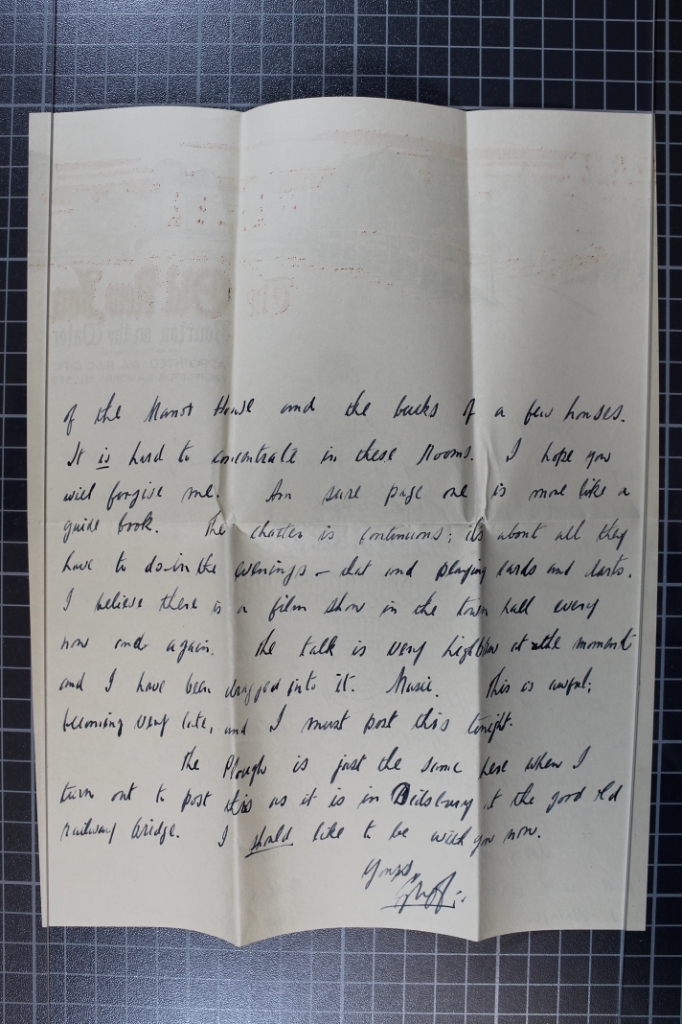 The Old New Inn
Bourton on the Water
of the Manor House and the backs of a few houses.
It is hard to concentrate in these Rooms. I hope you
will forgive me. Am sure page one is more like a
guide book. The chatter is continuous; its about all they
have to do in the evenings - that and playing cards and darts.
I believe there is a film show in the town hall every
now and again. The talk is very highbrow at the moment
and I have been dragged into it. Music. This is awful;
becoming very late, and I must post this tonight.
The Plough is just the same here when I
turn out to post this as it is in Didsbury at the good old
railway bridge. I should like to be with you now.
Yours